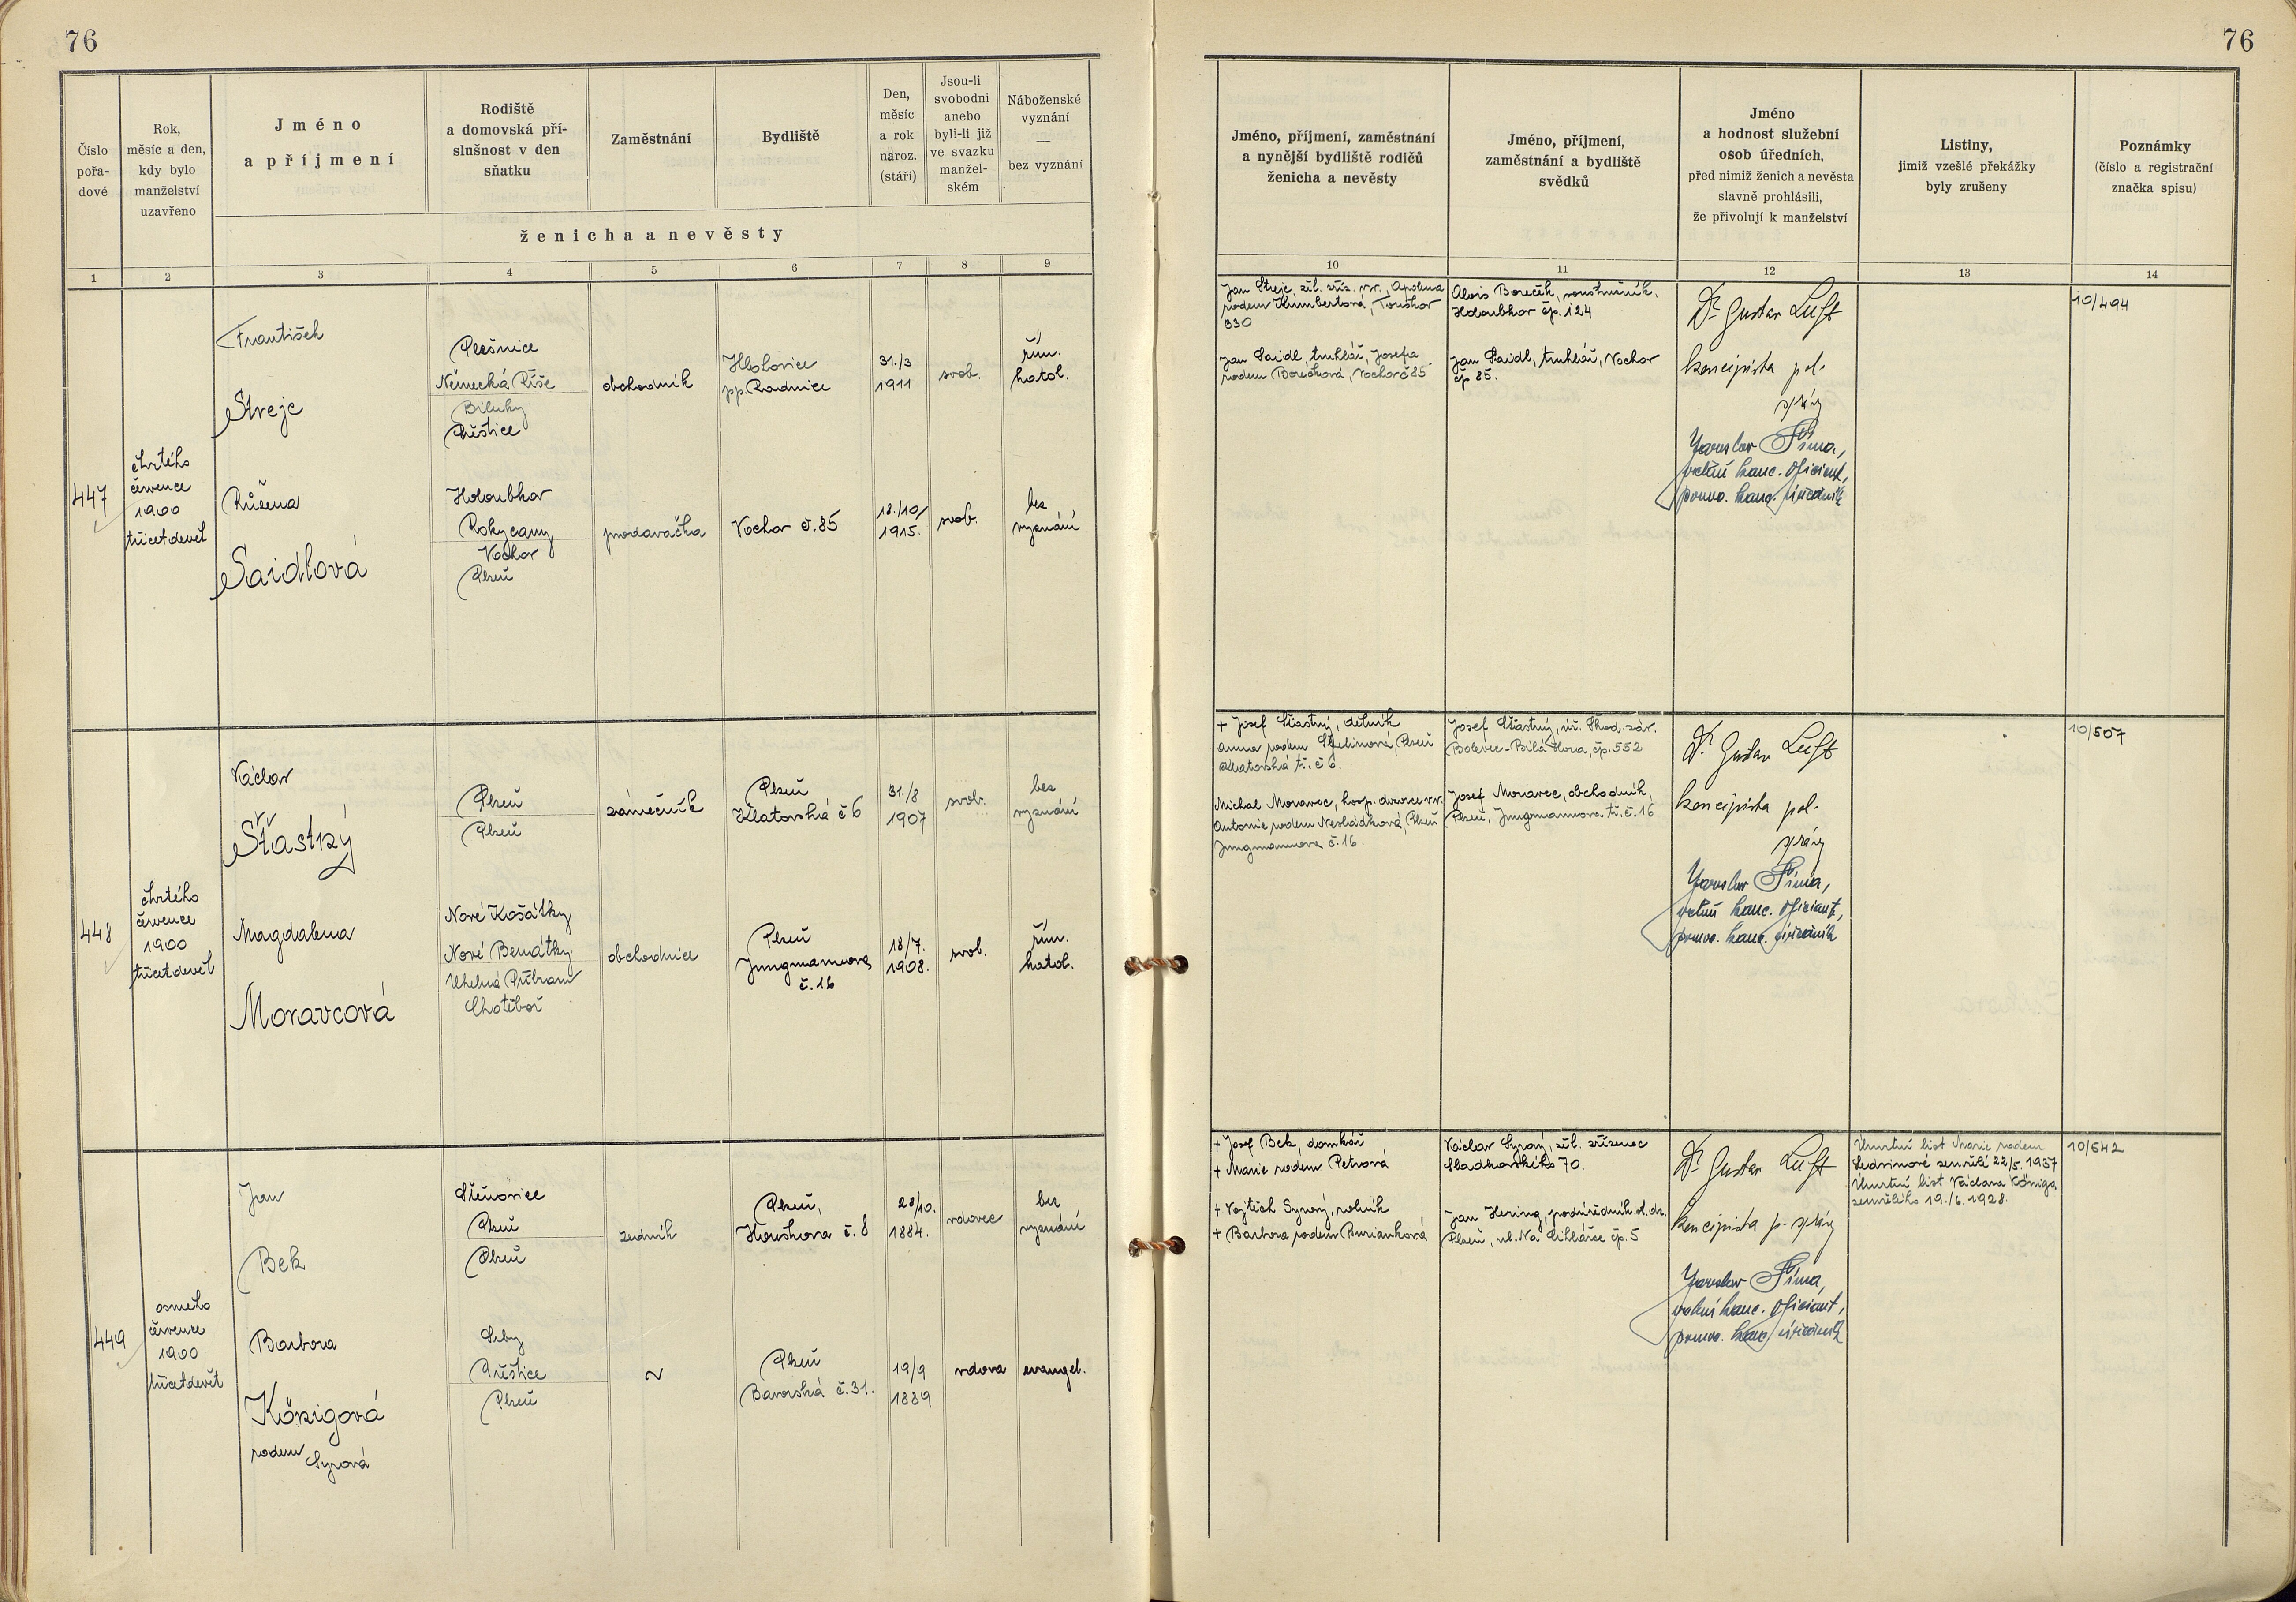 76
76
Číslo
pořa-
dové
Rok,
měsíc a den,
kdy bylo
manželství
uzavřeno
Jméno
a příjmení
Rodiště
a domovská pří-
slušnost v den
sňatku
Zaměstnání
Bydliště
Den,
měsíc
a rok
naroz.
(stáří)
Jsou-li
svobodni
anebo
byli-li již
ve svazku
manžel-
ském
Náboženské
vyznání
—
bez vyznání
ženicha a nevěsty
Jméno, příjmení, zaměstnání
a nynější bydliště rodičů
ženicha a nevěsty
Jméno, příjmení,
zaměstnání a bydliště
svědků
Jméno
a hodnost služební
osob úředních,
před nimiž ženich a nevěsta
slavně prohlásili,
že přivolují k manželství
Listiny,
jimiž vzešlé překážky
byly zrušeny
Poznámky
(číslo a registrační
značka spisu)
1 2 3 4 5 6 7 8 9
10 11 12 13 14
447
čtvrtého
července
1900
třicetdevět
František
Streje
Plešnice
Německá Říše
Biluky
Přeštice
obchodník
Hlohovice
pp. Radnice
31./3
1911
svob.
řím.
katol.
Růžena
Saidlová
Holoubkov
Rokycany
Vochov
Plzeň
prodavačka
Vochov č. 85
18./10/
1915.
svob.
bez
vyznání
Jan Streje, žel. zříz. v.v., Apolena
rodem Humbertová, Touškov
330
Jan Saidl, truhlář, Josefa
rodem Borečková, Vochov č 85
Alois Boreček, soustružník,
Holoubkov čp. 124
Jan Saidl, truhlář, Vochov
čp 85.
Dr Gustav Luft
koncipista pol.
správy
Jaroslav Šíma,
oficiant,
pomoc. kanc.
10/494
448
čtvrtého
července
1900
třicetdevět
Václav
Šťastný
Plzeň
Plzeň
zámečník
Plzeň
Klatovská č 6
31./8
1907
svob.
bez
vyznání
Magdalena
Moravcová
Nové Košátky
Nové Benátky
Uhelná Příbram
Chotěboř
obchodnice
Plzeň
Jungmannova
č. 16
18/7.
1908.
svob.
řím.
katol.
+ Josef Šťastný, dělník
Anna rodem Plzeň
Klatovská tř. č 6.
Michal Moravec, hosp. dozorce v.v.
Antonie rodem Plzeň
Jungmannova č. 16.
Josef Šťastný, úř. Škod. záv.
Bolevec-Bílá Hora, čp. 552
Josef Moravec, obchodník,
Plzeň, Jungmannova tř. č. 16
Dr Gustav Luft
koncipista pol.
správy
Jaroslav Šíma,
oficiant,
pomoc. kanc.
10/507
449
osmého
července
1900
třicetdevět
Jan
Bek
Štěnovice
Plzeň
Plzeň
zedník
Plzeň,
Houškova č. 8
28/10.
1884.
vdovec
bez
vyznání
Barbora
Königová
rodem
Syrová
Srby
Přeštice
Plzeň
~
Plzeň
Bavorská č. 31.
19/9
1889
vdova
evangel.
+ Josef Bek, domkář
+ Marie rodem Petrová
+ Vojtěch Syrový, rolník
+ Barbora rodem Buriánková
Václav Syrový, žel. zřízenec
Sladkovského 70.
Jan Hering, podúředník st. dr.
Plzeň, ul. Na čp. 5
Dr Gustav Luft
koncipista p. správy
Jaroslav Šíma,
oficiant,
pomoc. kanc.
Úmrtní list Marie rodem
zemřelé 22/5. 1937
Úmrtní list Václava Königa
zemřelého 19./6. 1928.
10/542